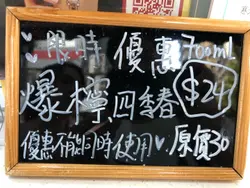 限時優惠 700ml
爆檸四季春 $24
優惠不能同時使用 原價30